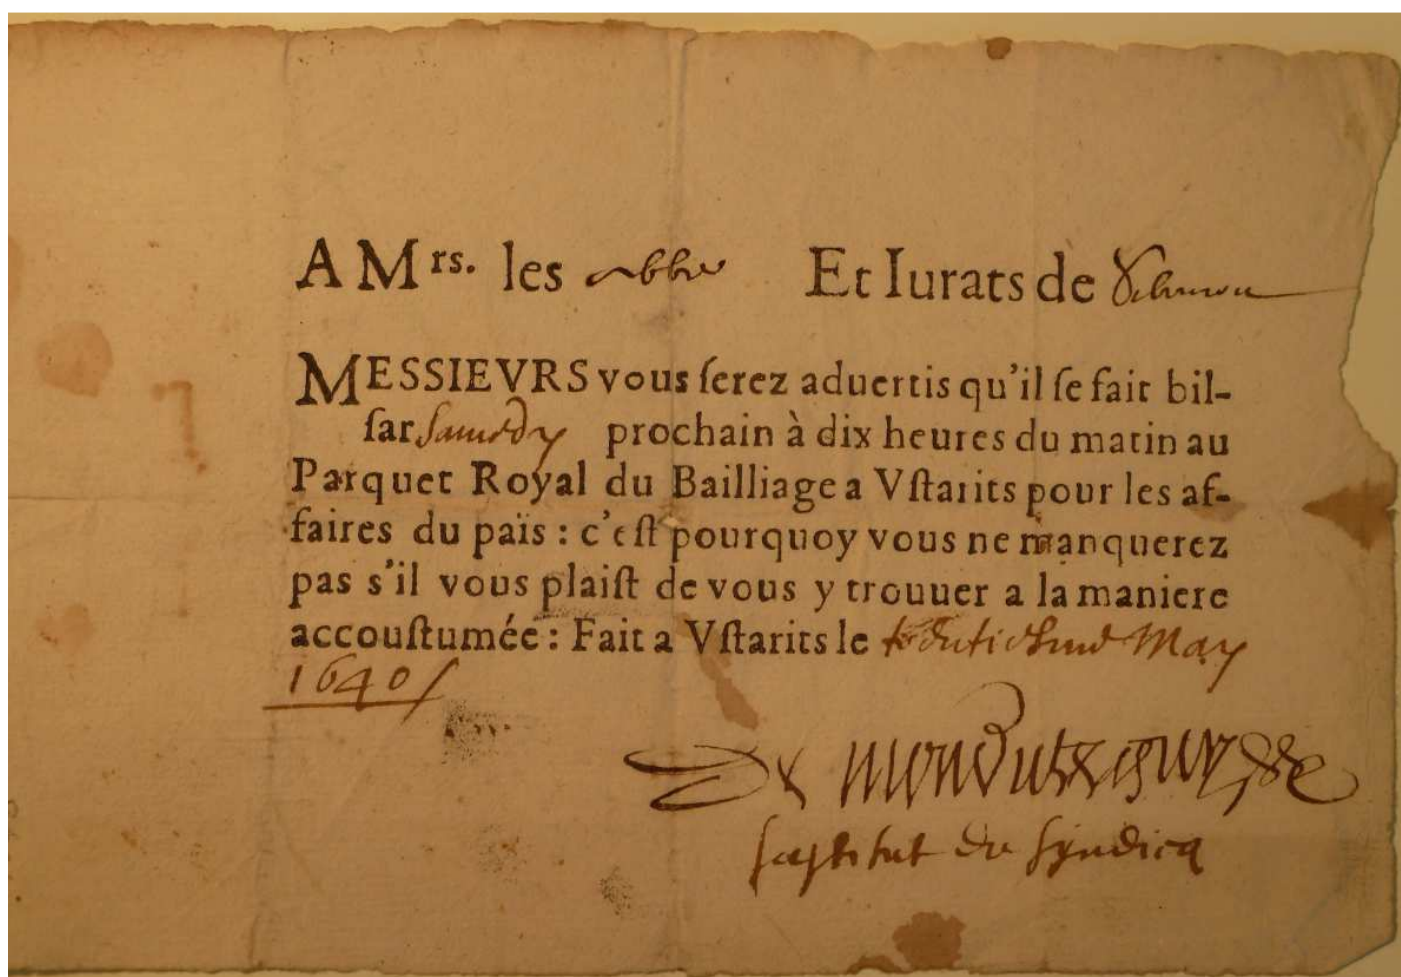 A Mrs. les abbe Et Iurats de
MESSIEVRS vous ſerez aduertis qu'il ſe fait bil-
ſar Samedy prochain à dix heures du matin au
Parquet Royal du Bailliage a Vſtarits pour les af-
faires du païs : c'eſt pourquoy vous ne manquerez
pas s'il vous plaiſt de vous y trouuer a la maniere
accouſtumée : Fait a Vſtarits le May
1640
du Syndicq